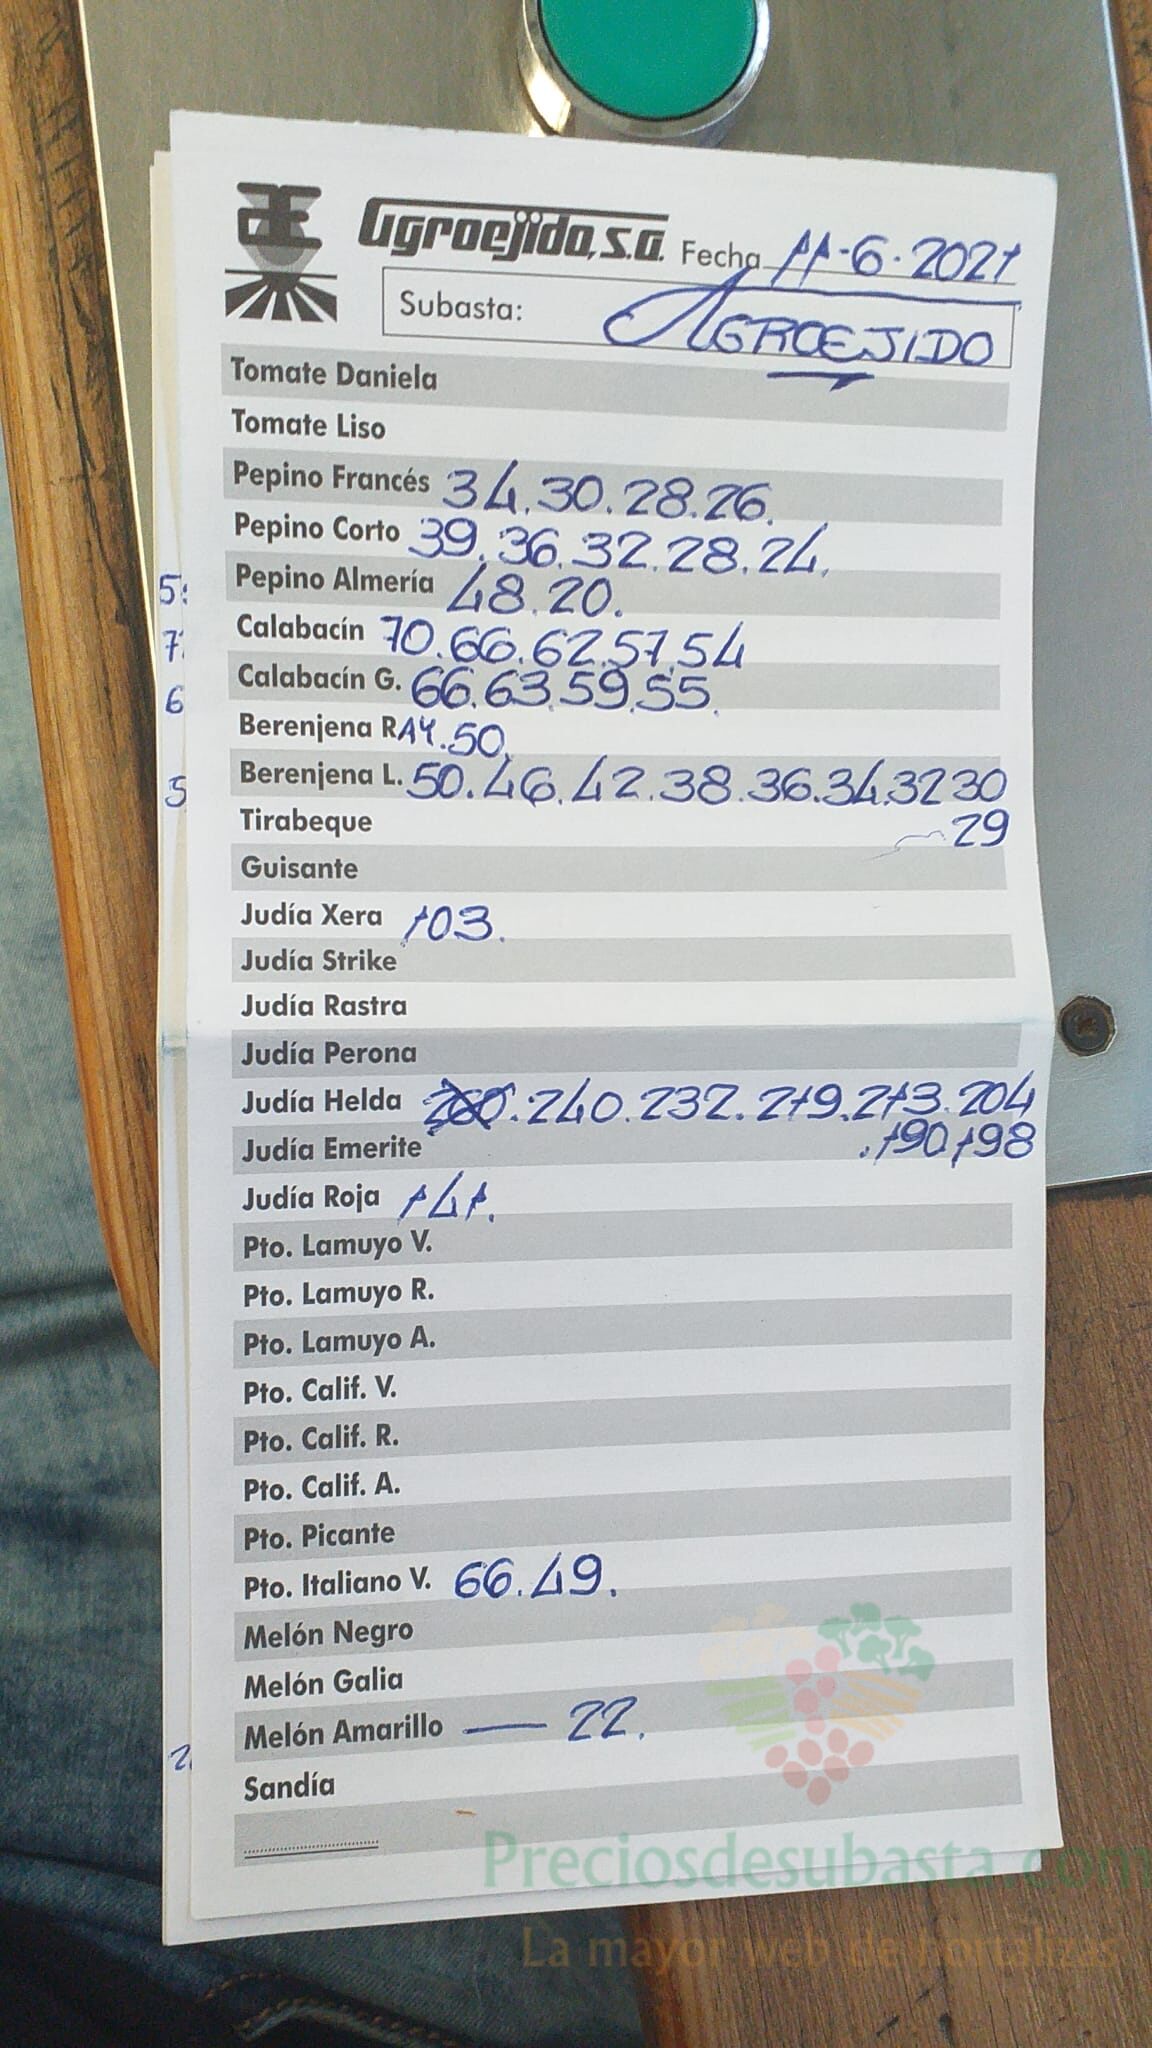 Agroejido, S.A. Fecha 11-6-2021
Subasta: AGROEJIDO
Tomate Daniela
Tomate Liso
Pepino Francés 34.30.28.26.
Pepino Corto 39.36.32.28.24.
Pepino Almería 48.20.
Calabacín 70.66.62.57.54
Calabacín G. 66.63.59.55.
Berenjena RAY.50.
Berenjena L. 50.46.42.38.36.34.32 30
Tirabeque 29
Guisante
Judía Xera 103.
Judía Strike
Judía Rastra
Judía Perona
Judía Helda .240.232.219.213.204
Judía Emerite .190,198
Judía Roja 141.
Pto. Lamuyo V.
Pto. Lamuyo R.
Pto. Lamuyo A.
Pto. Calif. V.
Pto. Calif. R.
Pto. Calif. A.
Pto. Picante
Pto. Italiano V. 66.49.
Melón Negro
Melón Galia
Melón Amarillo — 22.
Sandía
Preciosdesubasta.com
La mayor web de hortalizas